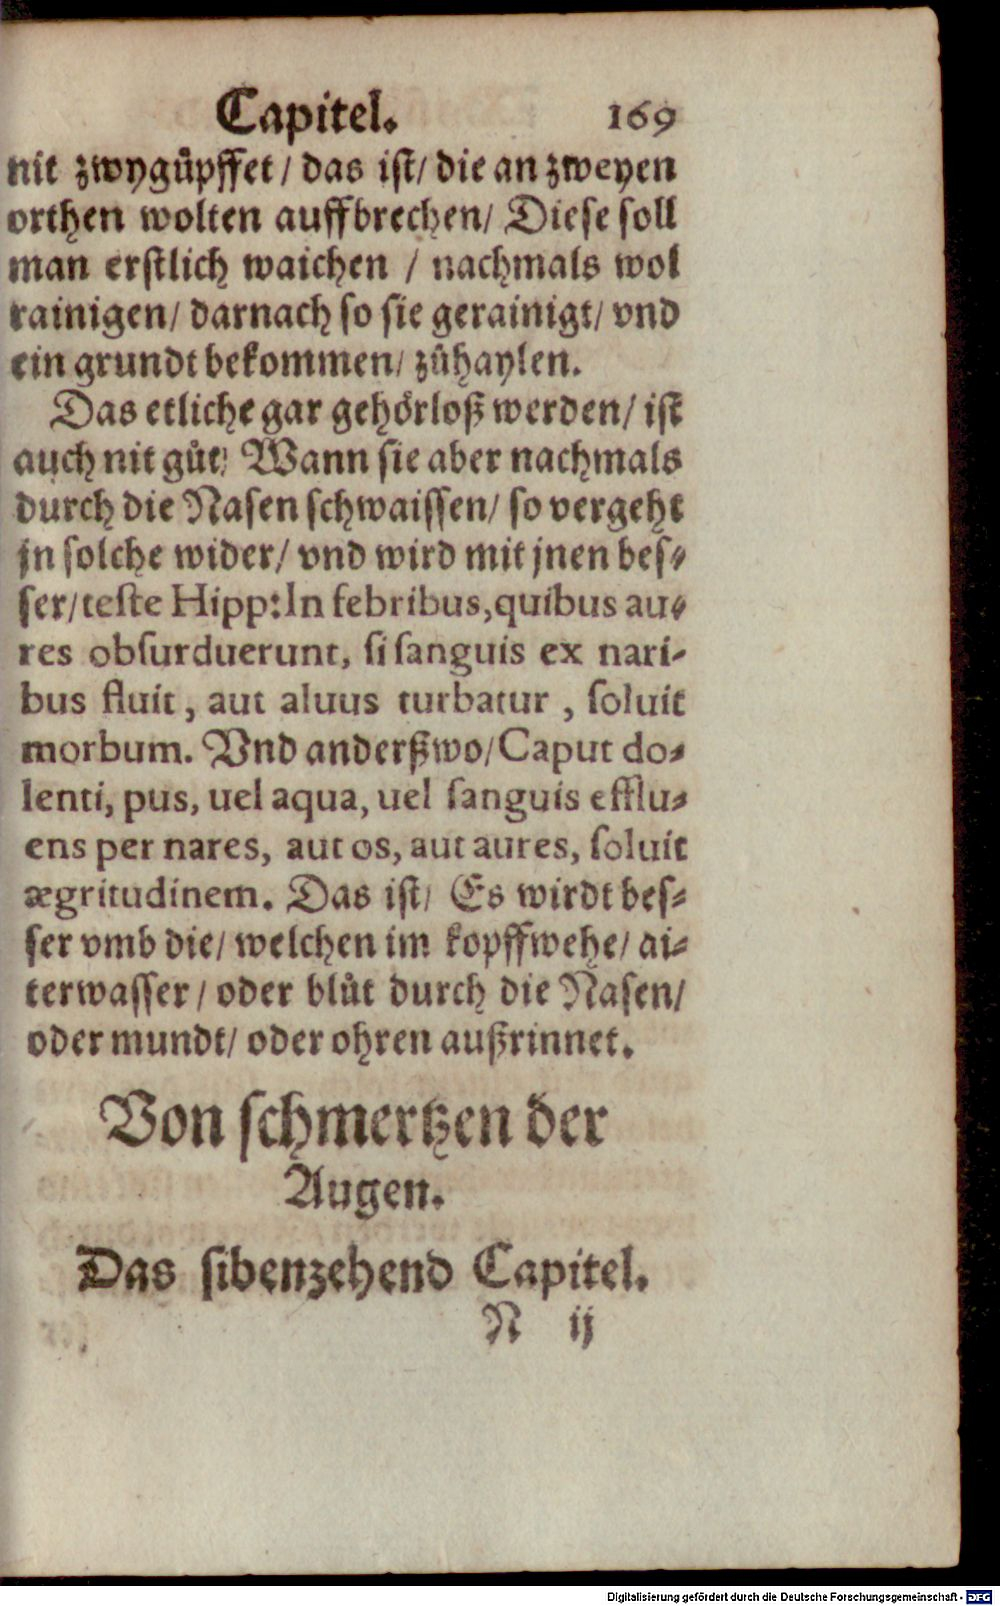 Capitel. 169
nit zwygůpffet / das ist / die an zweyen
orthen wolten auffbrechen / Diese soll
man erstlich waichen / nachmals wol
rainigen / darnach so sie gerainigt / vnd
ein grundt bekommen / zůhaylen.
Das etliche gar gehörloß werden / ist
auch nit gůt / Wann sie aber nachmals
durch die Nasen schwaissen / so vergeht
jn solche wider / vnd wird mit jnen bes⸗
ser / teste Hipp: In febribus, quibus au⸗
res obsurduerunt, si sanguis ex nari-
bus fluit, aut aluus turbatur, soluit
morbum. Vnd anderßwo / Caput do⸗
lenti, pus, uel aqua, uel sanguis efflu⸗
ens per nares, aut os, aut aures, soluit
ægritudinem. Das ist / Es wirdt bes⸗
ser vmb die / welchen im kopffwehe / ai⸗
terwasser / oder blůt durch die Nasen /
oder mundt / oder ohren außrinnet.
Von schmertzen der
Augen.
Das sibenzehend Capitel.
N ij
Digitalisierung gefördert durch die Deutsche Forschungsgemeinschaft - DFG